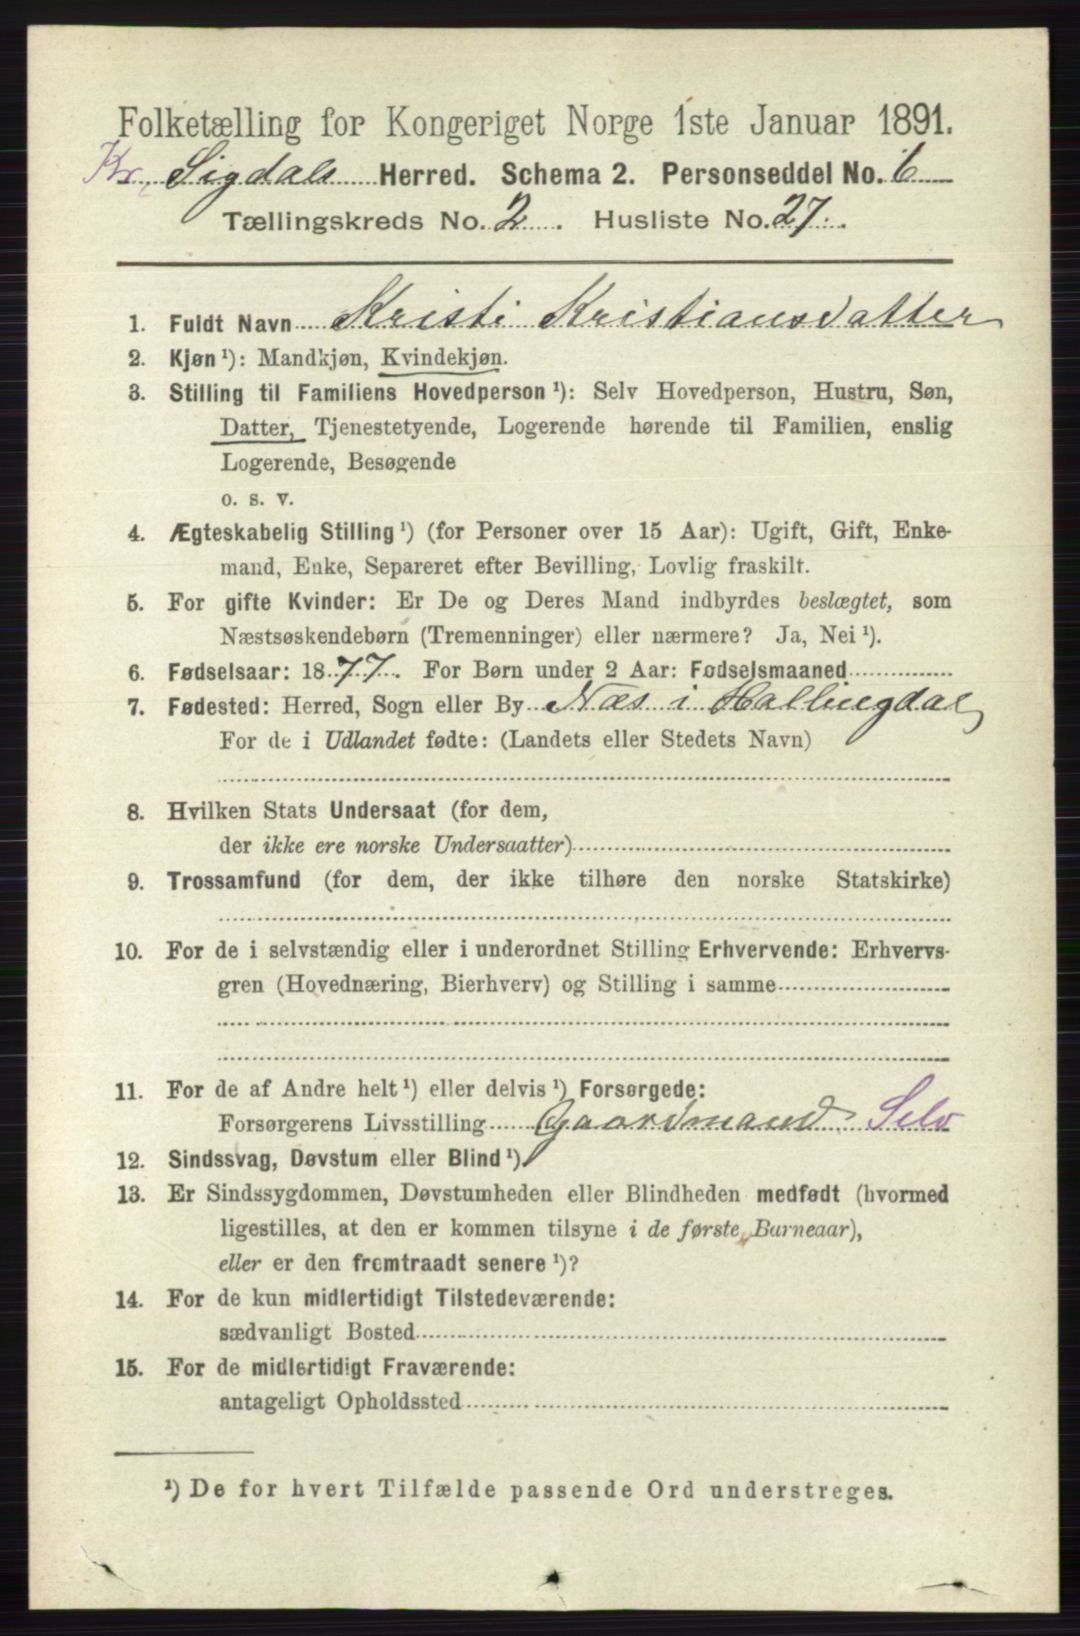 Folketælling for Kongeriget Norge 1ste Januar 1891.
Kr. Sigdals Herred. Schema 2. Personseddel No. 6
Tællingskreds No. 2. Husliste No. 27.
1. Fuldt Navn Kristi Kristiansdatter
2. Kjøn ¹): Mandkjøn, Kvindekjøn.
3. Stilling til Familiens Hovedperson ¹): Selv Hovedperson, Hustru, Søn,
Datter, Tjenestetyende, Logerende hørende til Familien, enslig
Logerende, Besøgende
o. s. v.
4. Ægteskabelig Stilling ¹) (for Personer over 15 Aar): Ugift, Gift, Enke-
mand, Enke, Separeret efter Bevilling, Lovlig fraskilt.
5. For gifte Kvinder: Er De og Deres Mand indbyrdes beslægtet, som
Næstsøskendebørn (Tremenninger) eller nærmere? Ja, Nei ¹).
6. Fødselsaar: 1877. For Børn under 2 Aar: Fødselsmaaned
7. Fødested: Herred, Sogn eller By Næs i Hallingdal
For de i Udlandet fødte: (Landets eller Stedets Navn)
8. Hvilken Stats Undersaat (for dem,
der ikke ere norske Undersaatter)
9. Trossamfund (for dem, der ikke tilhøre den norske Statskirke)
10. For de i selvstændig eller i underordnet Stilling Erhvervende: Erhvervs-
gren (Hovednæring, Bierhverv) og Stilling i samme
11. For de af Andre helt ¹) eller delvis ¹) Forsørgede:
Forsørgerens Livsstilling Gaardmand Selv
12. Sindssvag, Døvstum eller Blind ¹).
13. Er Sindssygdommen, Døvstumheden eller Blindheden medfødt (hvormed
ligestilles, at den er kommen tilsyne i de første Barneaar),
eller er den fremtraadt senere ¹)?
14. For de kun midlertidigt Tilstedeværende:
sædvanligt Bosted
15. For de midlertidigt Fraværende:
antageligt Opholdssted
¹) De for hvert Tilfælde passende Ord understreges.